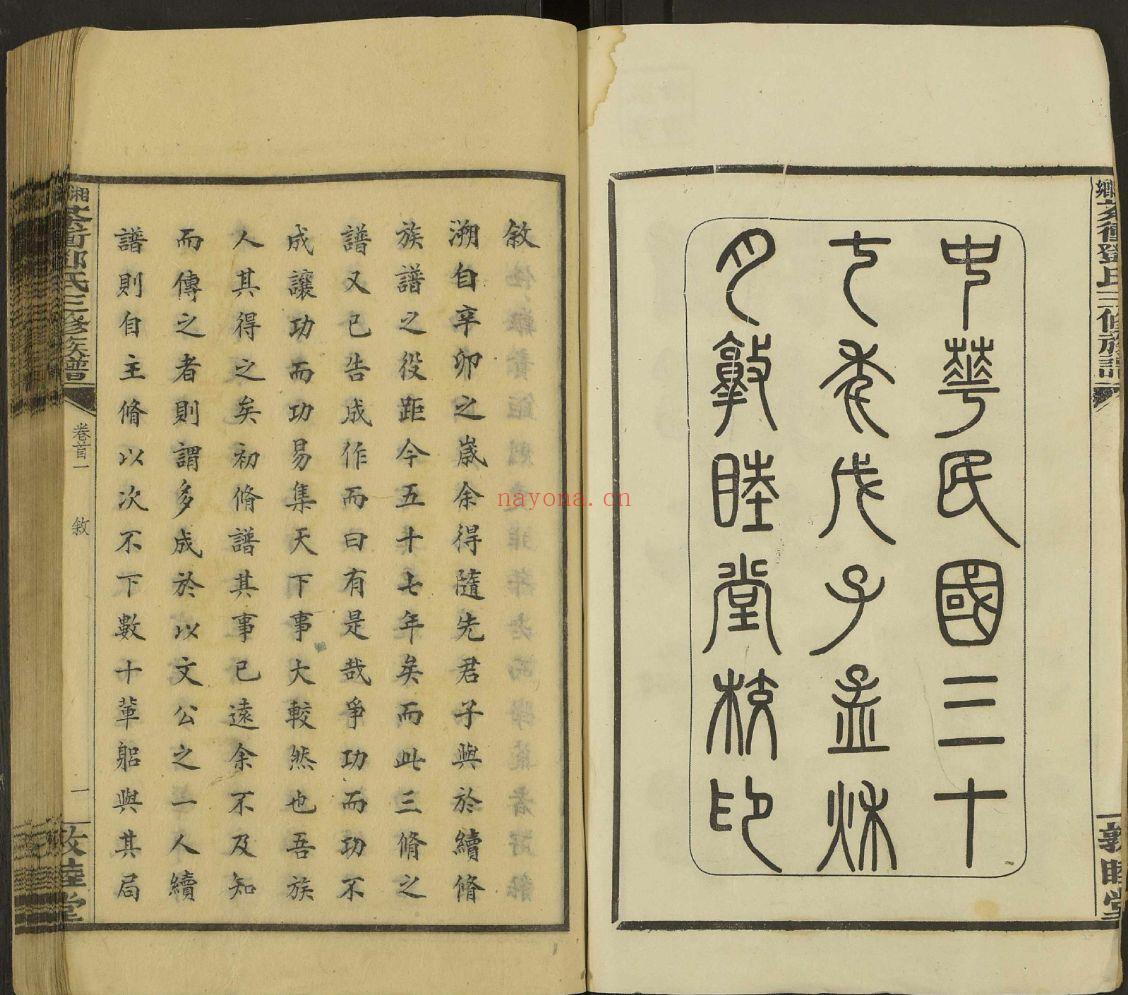 中華民國三十
七年戊子孟烌
月敦睦堂校印
鄉茶衝鄧氏三修族譜
敦睦堂
敘
溯自辛卯之歲余得隨先君子與於續脩
族譜之役距今五十七年矣而此三脩之
譜又已告成作而曰有是哉爭功而功不
成讓功而功易集天下事大較然也吾族
人其得之矣初脩譜其事已遠余不及知
而傳之者則謂多成於以文公之一人續
譜則自主脩以次不下數十輩躳與其局
湘
茶衝鄧氏三修族譜
卷首一
敘
一
敦睦堂
nayona.cn